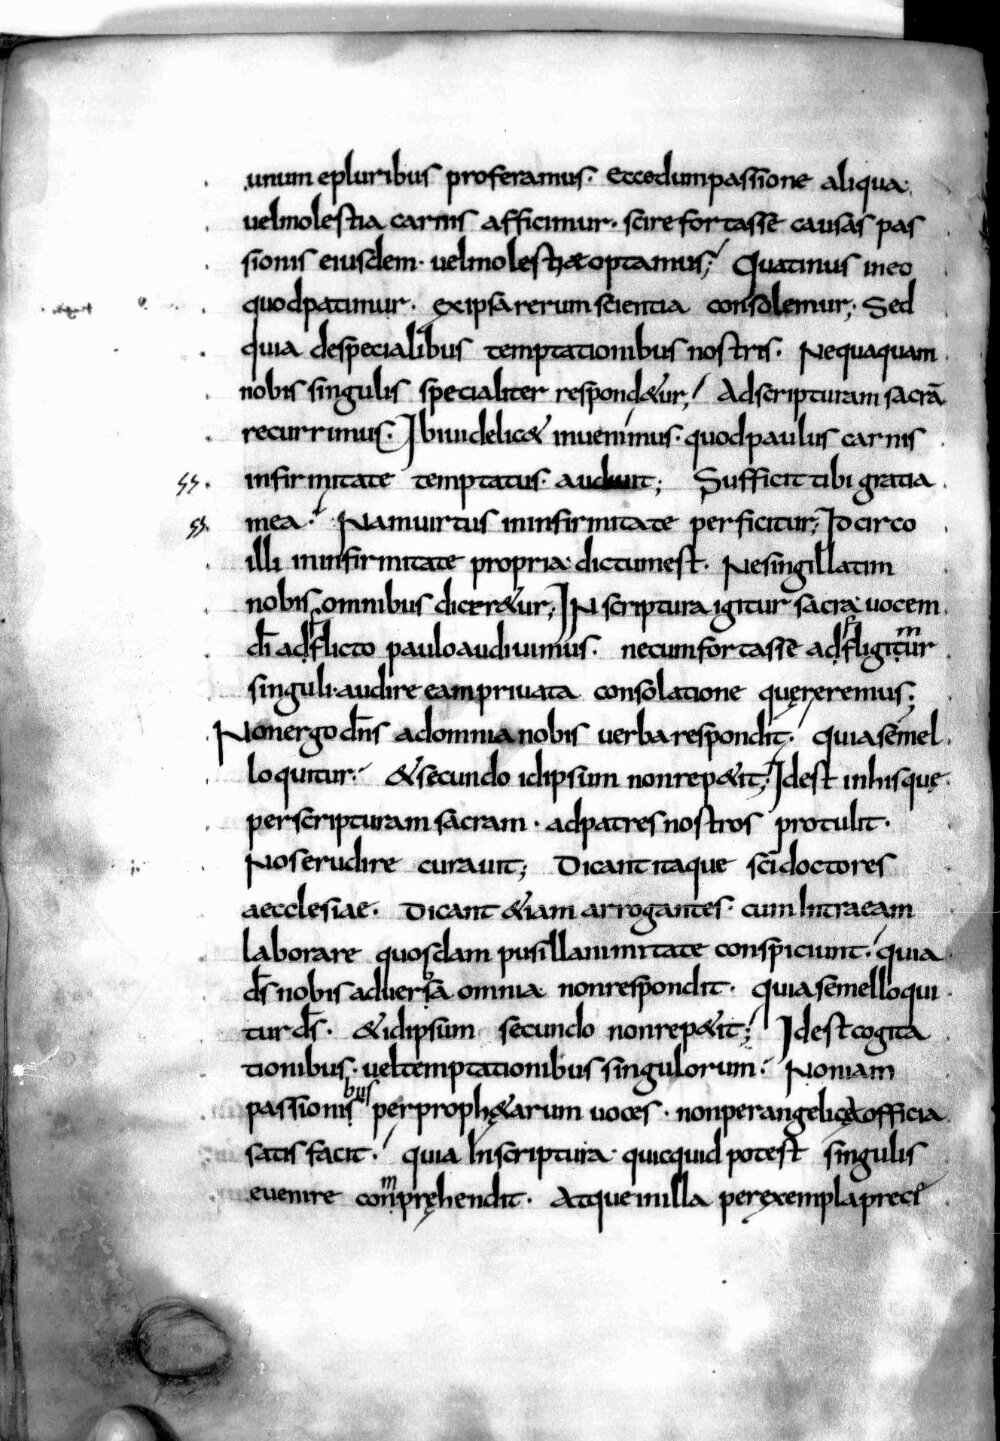 unum epluribus proferamus. Eccedumpassione aliqua.
uelmolestia carnis afficimur. scirefortasse causas pas
sionis eiusdem. uelmolestiaeoptamus; Quatinus ineo
quodpatimur. exipsarerum scientia consolemur; Sed
quia despecialibus temptationibus nostris. Nequaquam
nobis singulis specialiter respond&ur; Adscripturam sacrā
recurrimus. Ibiuidelic& inuenimus. quodpaulus carnis
infirmitate temptatus. audiuit; Sufficit tibi gratia
mea. Namuirtus ininfirmitate perficitur; Idcirco
illi ininfirmitate propria dictumest. Nesingillatim
nobis omnibus dicer&ur; INscriptura igitur sacra uocem
dī adflicto pauloaudiuimus. necumfortasse adfligimur
singuli. audire eamprivata consolatione quęreremus;
Nonergo dn̄s adomnia nobis uerba respondit. quiasemel
loquitur. &secundo idipsum nonrep&it; Idest inhisquę
perscripturam sacram. adpatres nostros protulit.
Nos erudire curauit; Dicant itaque sc̄i doctores
aecclesiae. Dicant &iam arrogantes. cum Intraeam
laborare quosdam pusillanimitate conspiciunt. quia
ds̄ nobis aduersa omnia nonrespondit. quiasemelloqui
tur ds̄. &idipsum secundo nonrep&it; Idest cogita
tionibus. ueltemptationibus singulorum. Noniam
passionibus perproph&arum uoces. nonperangelica officia
satis facit. quia Inscriptura quicquid potest singulis
euenire comprehendit. Atque inilla perexempla preci